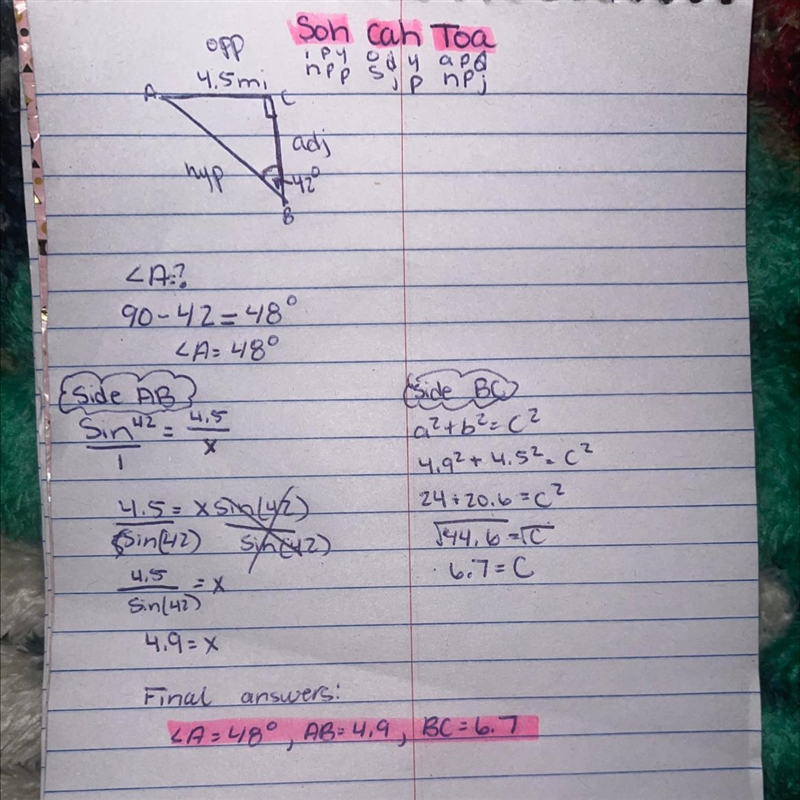 Soh Cah Toa
opp
ipy
npp
ody
sjp
apd
npj
4.5mi
A
C
adj
hyp
42°
B
<A=?
90-42=48°
<A=48°
Side AB
Sin⁴²/1 = 4.5/x
4.5/Sin(42) = x sin(42)/sin(42)
4.5/Sin(42) = x
4.9=x
Side BC
a²+b²=c²
4.9²+4.5²=c²
24+20.6=c²
√44.6=√c
6.7=c
Final answers:
<A=48°, AB=4.9, BC=6.7